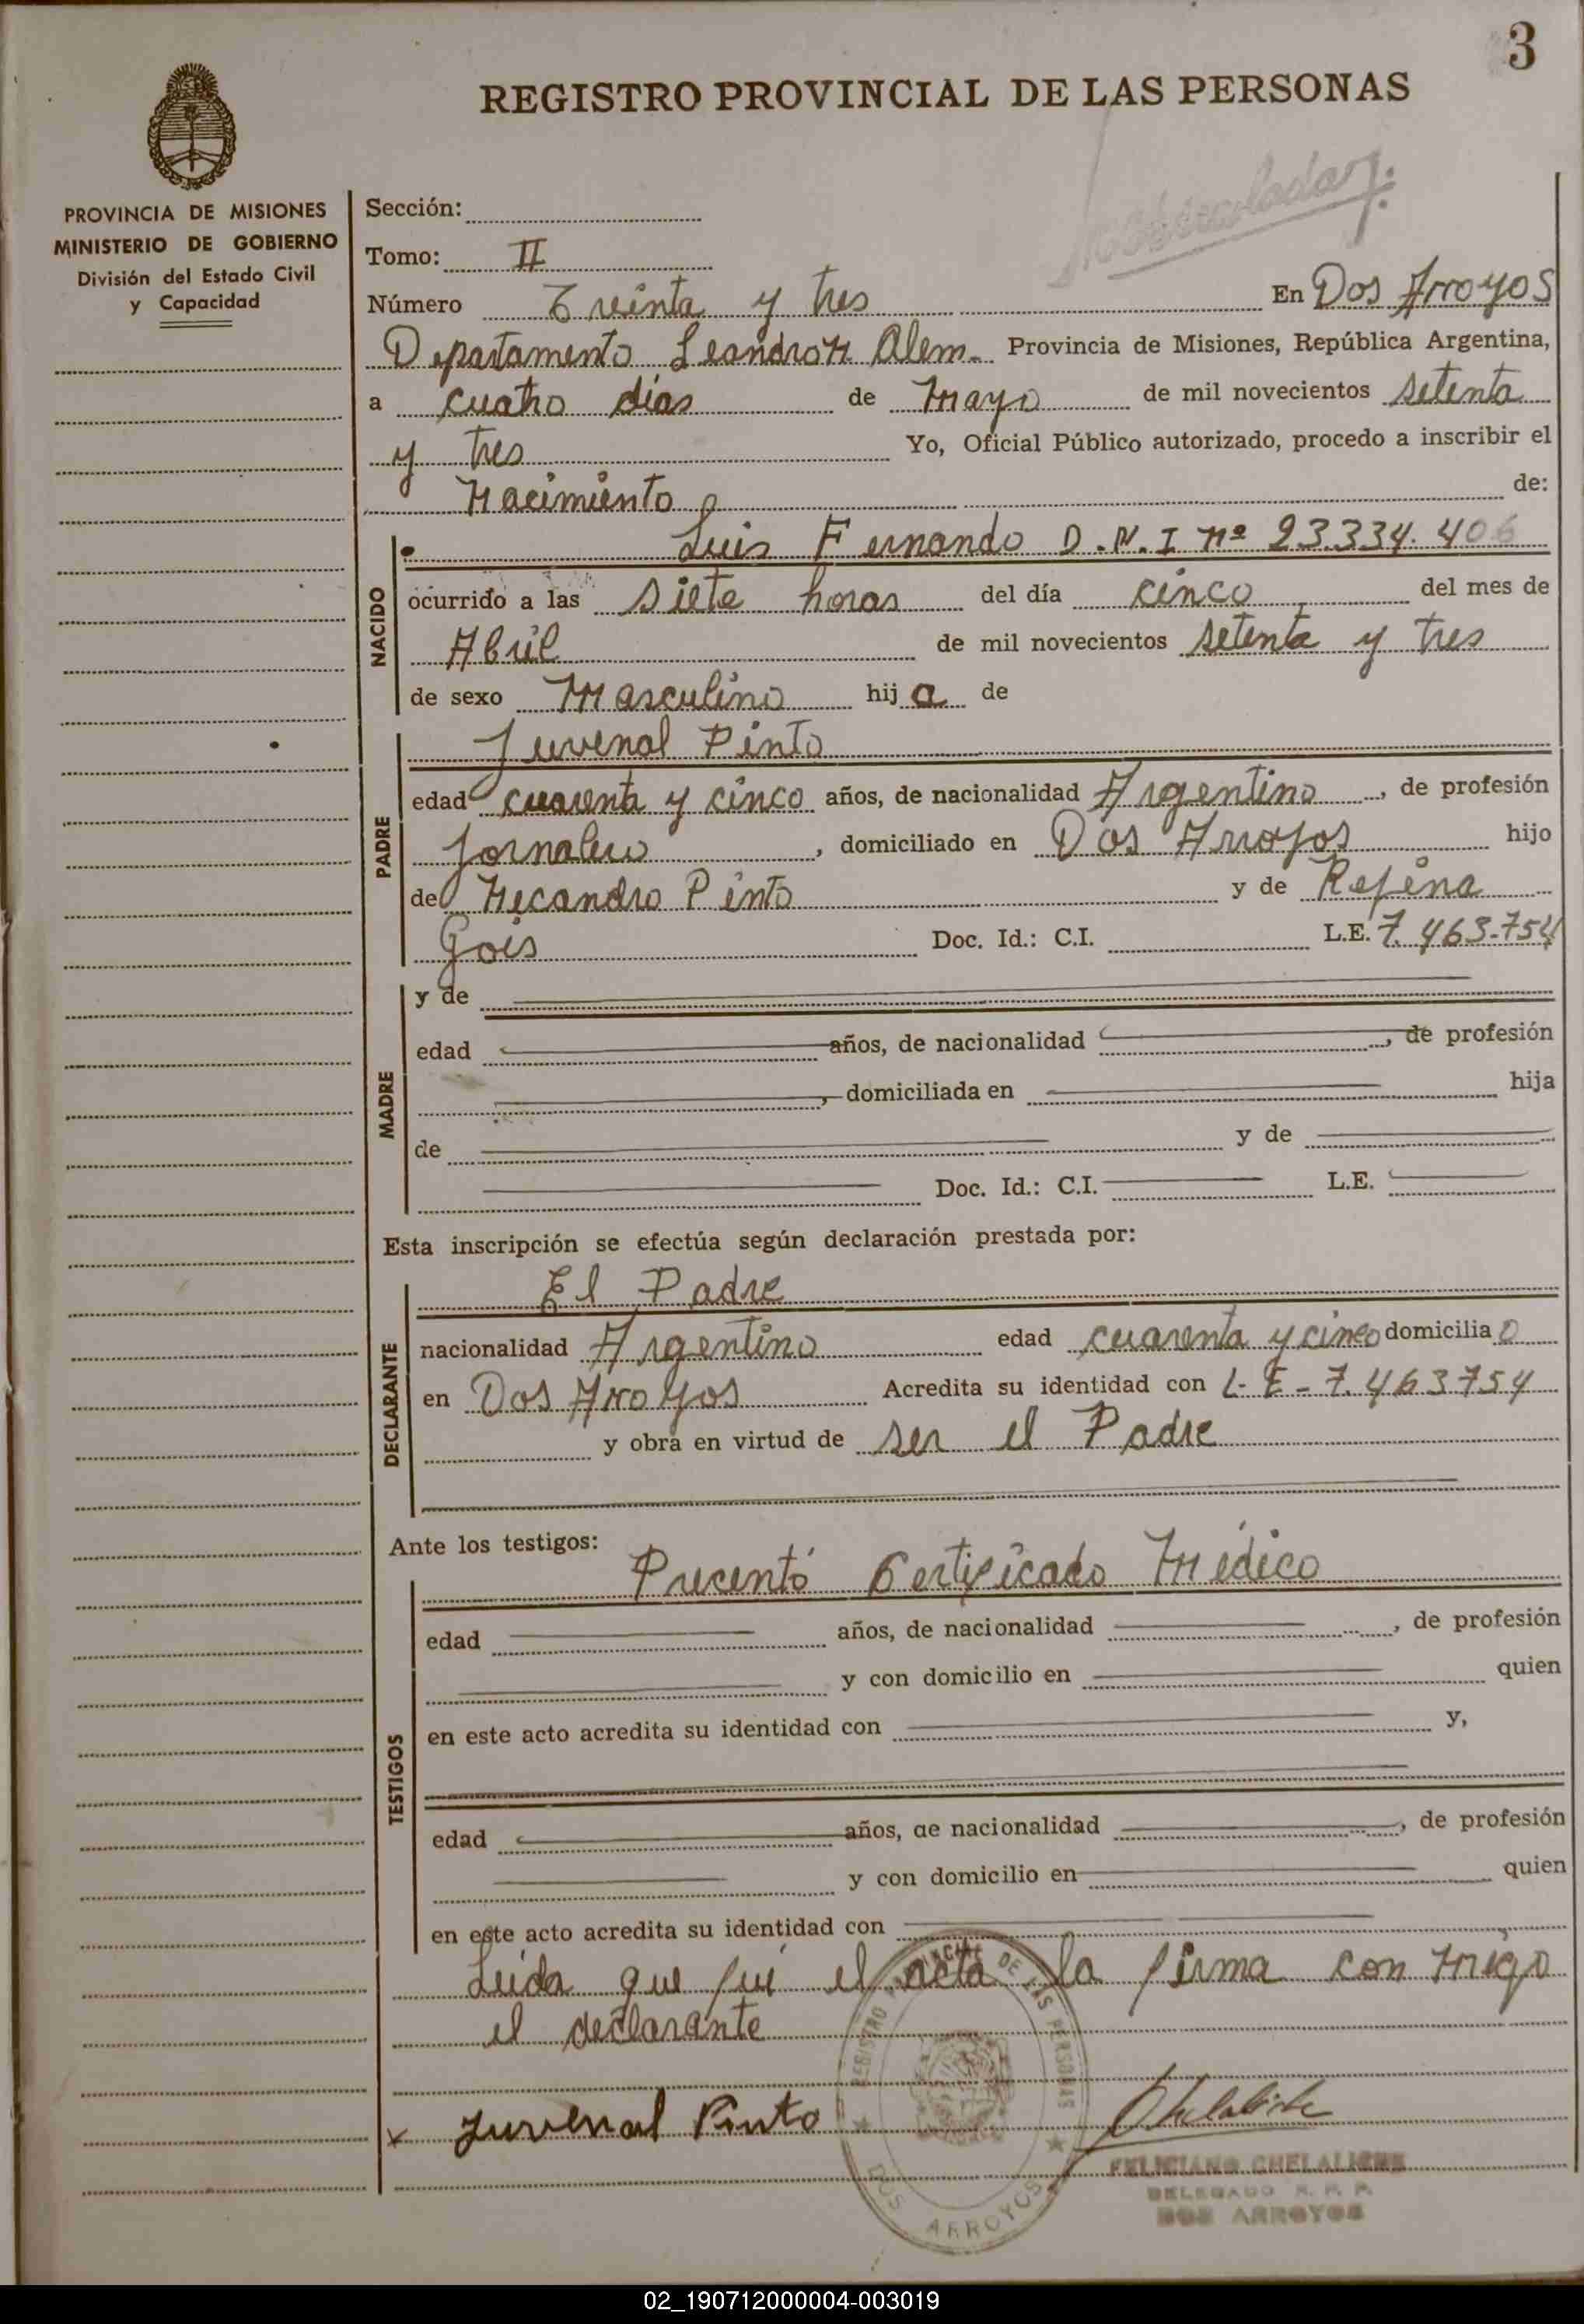 3
REGISTRO PROVINCIAL DE LAS PERSONAS
PROVINCIA DE MISIONES
MINISTERIO DE GOBIERNO
División del Estado Civil
y Capacidad
Sección:
Tomo: II
Número Treinta y tres En Dos Arroyos
Departamento Leandro N. Alem. Provincia de Misiones, República Argentina,
a cuatro días de Mayo de mil novecientos setenta
y tres Yo, Oficial Público autorizado, procedo a inscribir el
Nacimiento de:
NACIDO
Luis Fernando D.N.I nº 23.334.406
ocurrido a las siete horas del día cinco del mes de
Abril de mil novecientos setenta y tres
de sexo Masculino hij a de
PADRE
Juvenal Pinto
edad cuarenta y cinco años, de nacionalidad Argentino, de profesión
Jornalero, domiciliado en Dos Arroyos hijo
de Necandro Pinto y de Rejina
Gois Doc. Id.: C.I. L.E. 7.463.754
MADRE
y de
edad años, de nacionalidad , de profesión
, domiciliada en hija
de y de
Doc. Id.: C.I. L.E.
Esta inscripción se efectúa según declaración prestada por:
DECLARANTE
El Padre
nacionalidad Argentino edad cuarenta y cinco domicilia o
en Dos Arroyos Acredita su identidad con L-E-7.463754
y obra en virtud de ser el Padre
Ante los testigos:
TESTIGOS
Presentó Certificado Médico
edad años, de nacionalidad , de profesión
y con domicilio en quien
en este acto acredita su identidad con y,
edad años, de nacionalidad , de profesión
y con domicilio en quien
en este acto acredita su identidad con
Leida que fui el acta la firma con migo
el declarante
x Juvenal Pinto
REGISTRO PROVINCIAL DE LAS PERSONAS
DOS ARROYOS
FELICIANO CHELALICHE
DELEGADO R. P. P.
DOS ARROYOS
02_190712000004-003019